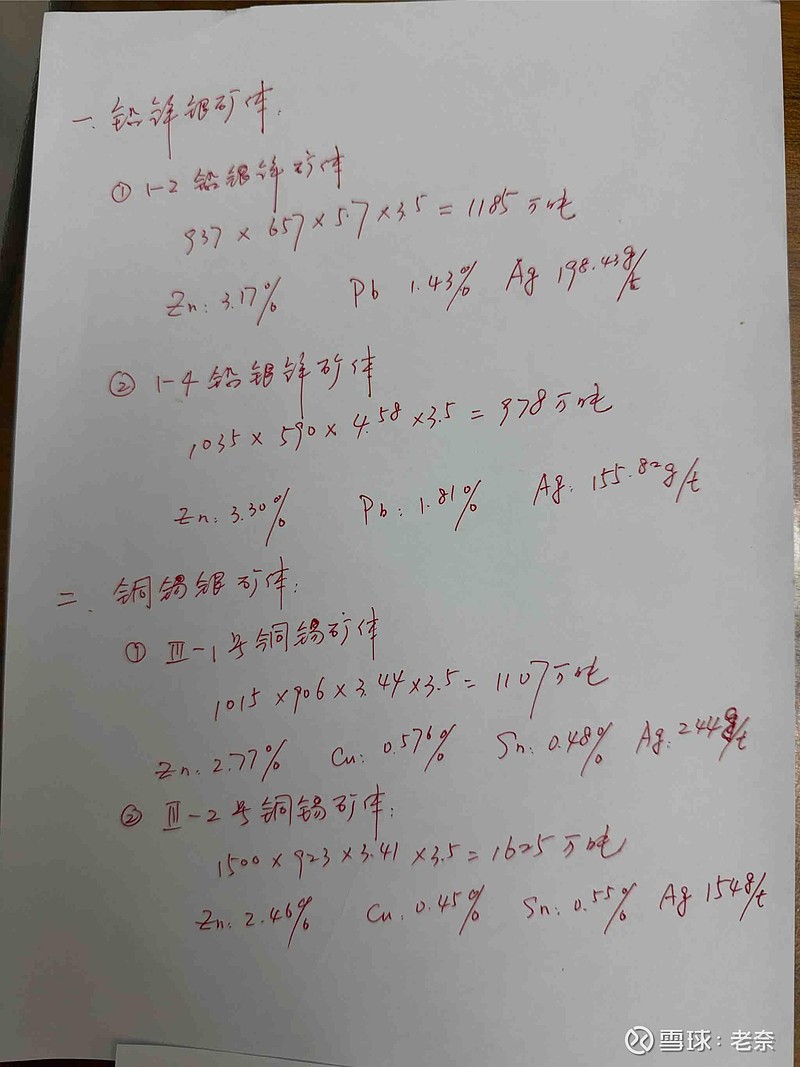 一、铅锌银矿体:
① 1-2 铅银锌矿体
937 × 657 × 5.7 × 3.5 = 1185 万吨
Zn: 3.17% Pb 1.43% Ag 198.43g/t
② 1-4 铅银锌矿体
1035 × 590 × 4.58 × 3.5 = 978 万吨
Zn: 3.30% Pb: 1.81% Ag: 155.82g/t
二、铜锡银矿体:
① Ⅲ-1号铜锡矿体
1015 × 906 × 3.44 × 3.5 = 1107 万吨
Zn: 2.77% Cu: 0.576% Sn: 0.48% Ag: 244g/t
② Ⅲ-2号铜锡矿体:
1500 × 923 × 3.41 × 3.5 = 1625 万吨
Zn: 2.46% Cu: 0.45% Sn: 0.55% Ag 154g/t
雪球:老奈